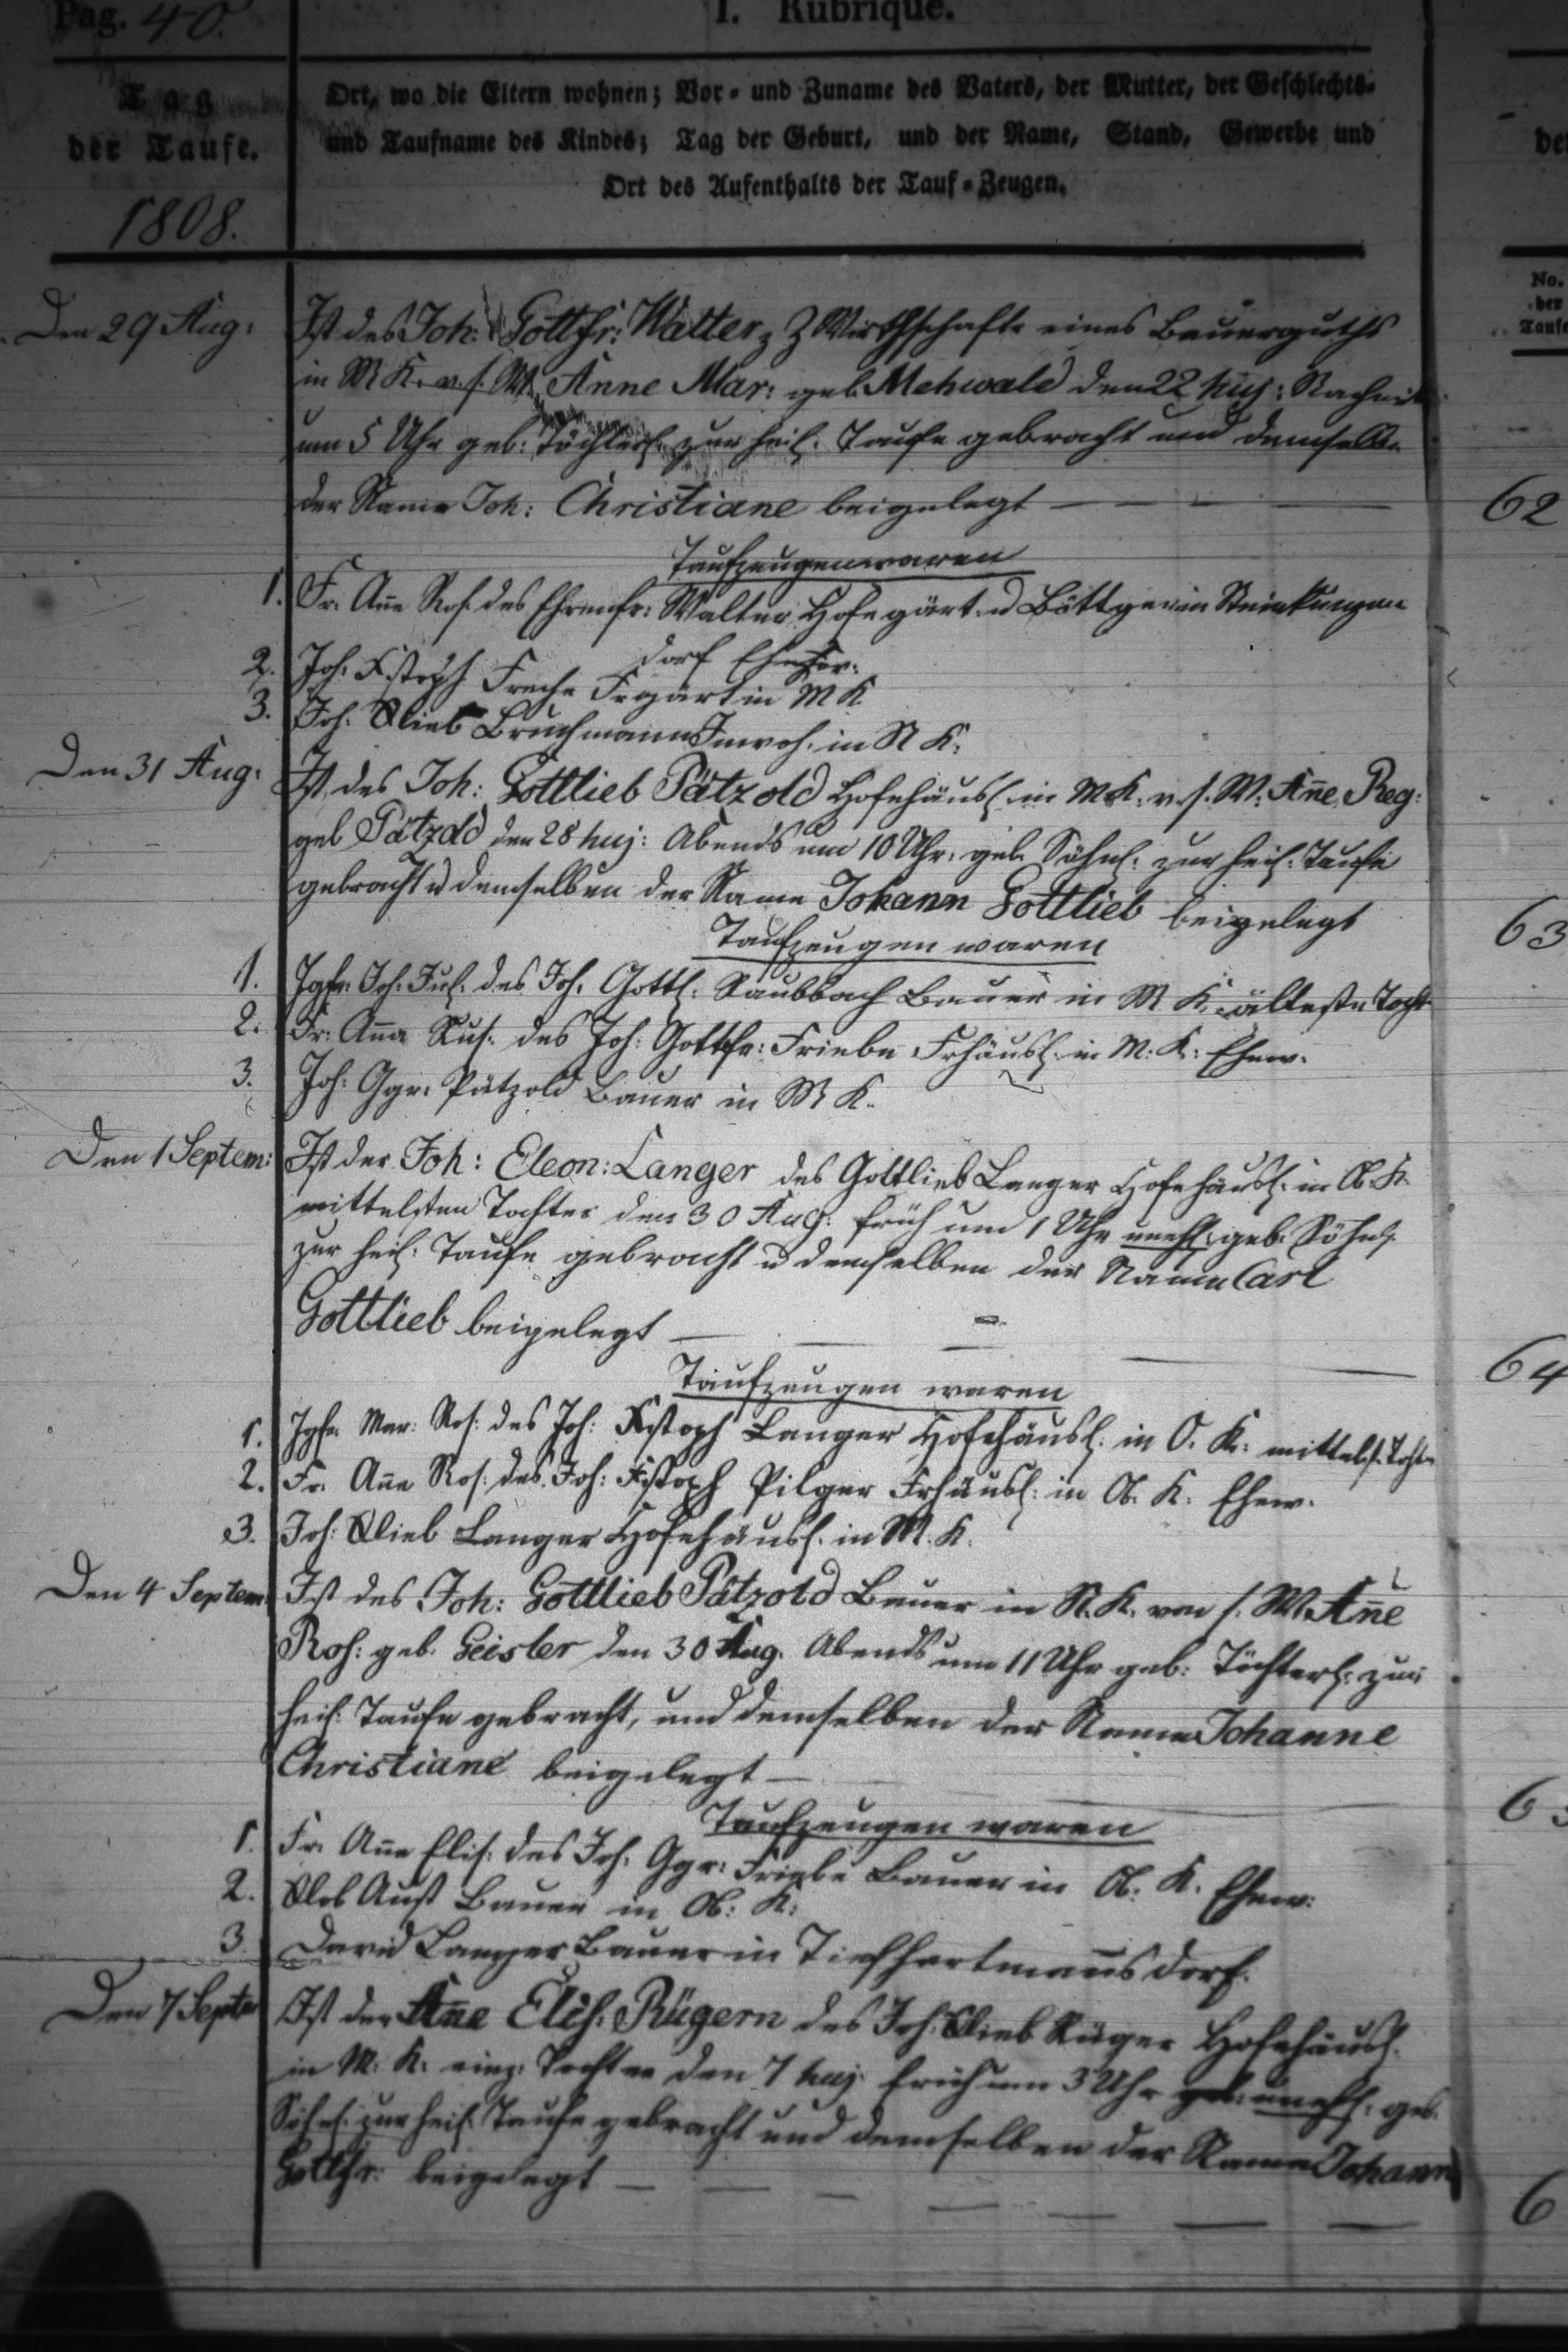 Pag. 40.
I. Rubrique.
Tag
der Taufe.
1808.
Ort, wo die Eltern wohnen; Vor- und Zuname des Vaters, der Mutter, der Geschlechts-
und Taufname des Kindes; Tag der Geburt, und der Name, Stand, Gewerbe und
Ort des Aufenthalts der Tauf-Zeugen.
No.
der
Taufe
Den 29 Aug: Ist des Joh: Gottfr: Walter, Z Wirthschafts eines Bauerguths
in M K. v. s. W. Anne Mar: geb. Mehwald den 22 huj: Nachmit
um 5 Uhr geb: Töchterl. zur heil. Taufe gebracht und demselben
der Name Joh: Christiane beigelegt
62
Taufzeugen waren
1. Fr. Añe Ros. des Ehrenfr: Walter Hofegärt. u Böttger in
dorf Ehew.
2. Joh. Xstoph Freche Frgärt in M K
3. Joh. Glieb Bruchmann Inwoh. in N K.
Den 31 Aug: Ist des Joh: Gottlieb Pätzold Hofehäusl. in M. K. v. s. W. Añe Reg:
geb Pätzold den 28 huj: Abends um 10 Uhr. geb. Söhnl: zur heil: Taufe
gebracht u demselben der Name Johann Gottlieb beigelegt
63
Taufzeugen waren
1. Jgfr. Joh. Jul. des Joh. Gottl: Raubbach Bauer in M K. älteste Tocht
2. Fr: Aña Ros. des Joh: Gottfr: Friebe Frhäusl. in M: K: Ehew.
3. Joh: Ggr. Pätzold Bauer in M K.
Den 1 Septem: Ist der Joh: Eleon: Langer des Gottlieb Langer Hofehäusl. in O. K.
mittelsten Tochter den 30 Aug: früh um 1 Uhr unehl: geb. Söhnl.
zur heil: Taufe gebracht u demselben der Name Carl
Gottlieb beigelegt
64
Taufzeugen waren
1. Jgfr. Mar: Ros: des Joh: Xstoph Langer Hofehäusl. in O. K. mittelst. Tocht
2. Fr. Añe Ros: des Joh: Xstoph Pilger Frhäusl: in O. K. Ehew.
3. Joh: Glieb Langer Hofehäusl. in M. K.
Den 4 Septem: Ist des Joh: Gottlieb Pätzold Bauer in N. K. von s. W. Añe
Ros: geb. Geisler den 30 Aug. Abends um 11 Uhr geb: Töchterl: zur
heil: Taufe gebracht, und demselben der Name Johanne
Christiane beigelegt
Taufzeugen waren
1. Fr. Añe Elis: des Joh. Ggr: Friebe Bauer in O. K. Ehew:
2. Glob Aust Bauer in O: K:
3. David Langer Bauer in Tiefhartmañsdorf.
Den 7 Septe Ist der Añe Elis. Rügern des Joh. Glieb Rüger Hofehäusl.
in M. K. einz. Tochter den 7 huj. früh um 3 Uhr unehl. geb.
Söhnl. zur heil. Taufe gebracht und demselben der Name Johann
Gottfr: beigelegt